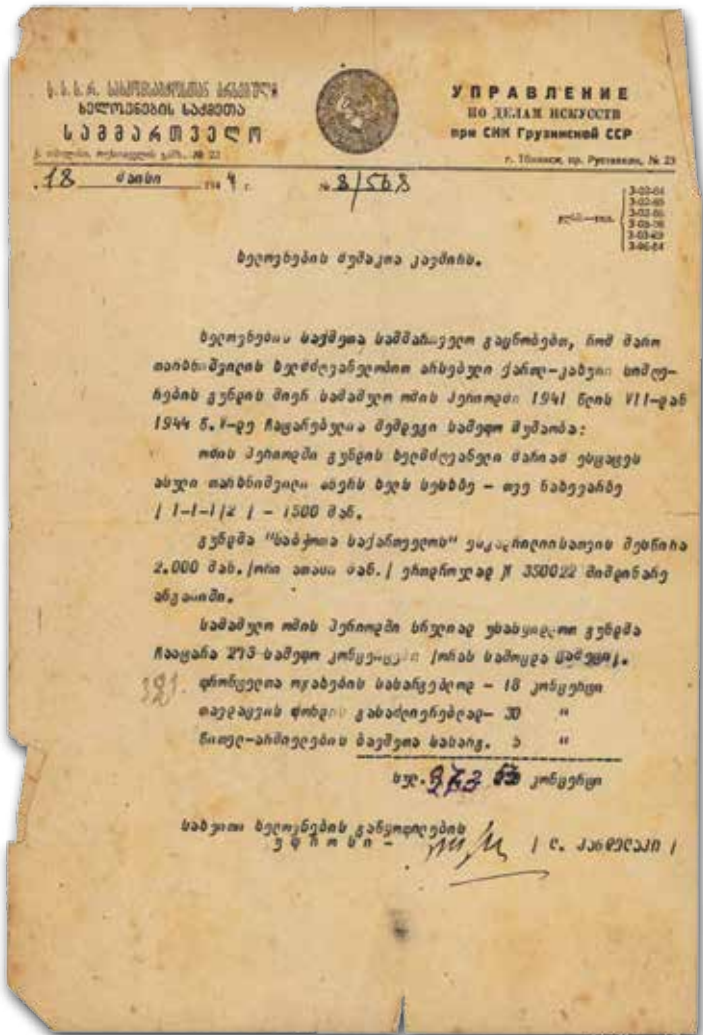 ს.ს.ს.რ. სახკომსაბჭოსთან არსებული
ხელოვნების საქმეთა
სამმართველო
УПРАВЛЕНИЕ
ПО ДЕЛАМ ИСКУССТВ
при СНК Грузинской ССР
№ 23
г. Тбилиси, пр. Руставели, № 23
18 მაისი 1944 г. № 3/568
3-02-65
3-03-69
ხელოვნების მუშაკთა კავშირს.
ხელოვნების საქმეთა სამმართველო გაცნობებთ, რომ მარო
თარხნიშვილის ხელმძღვანელობით არსებული ქართლ-კახური სიმღე-
რების გუნდის მიერ სამამულო ომის პერიოდში 1941 წლის VII-დან
1944 წ. V-მდე ჩატარებულია შემდეგი საშეფო მუშაობა:
ომის პერიოდში გუნდის ხელმძღვანელი მარიამ
ასული თარხნიშვილი აწერს ხელს სესხზე - თვე ნახევარზე
/ 1-1-1/2 / - 1500 მან.
გუნდმა "საბჭოთა საქართველოს" ესკადრილიისათვის შესწირა
2.000 მან. /ორი ათასი მან./ ერთდროულად № 350022 მიმდინარე
ანგარიში.
სამამულო ომის პერიოდში სრულიად უსასყიდლოთ გუნდმა
ჩაატარა 273 საშეფო კონცერტი /ორას სამოცდა ცამეტი/.
ფრონტელთა ოჯახების სასარგებლოდ - 18 კონცერტი
თავდაცვის ფონდის გასაძლიერებლად- 30 "
წითელ-არმიელების ბავშვთა სასარგ. 5 "
სულ. 373 53 კონცერტი
სახვითი ხელოვნების განყოფილების
უფროსი - / ლ. კანდელაკი /